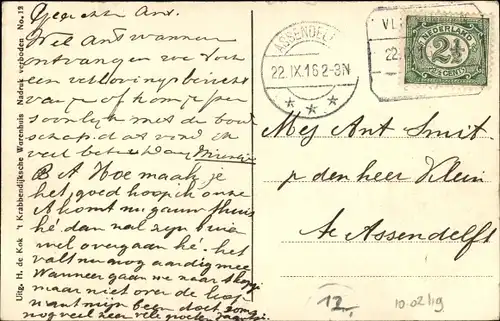 Geachte Ant.
Nel Ant wanneer
ontvangen we toch
een verlovingsbericht
van je of kom je per
soonlijk met de bood
schap. dat vind ik
veel beter dag
B A Hoe maak je
het, goed hoop ik onze
A komt nu gauw thuis
hé dan zal zijn
wel overgaan hé. het
valt nu nog aardig mee
Wanneer gaan we naar
maar niet over de
want mijn been doet soms
nog veel zeer vele groeten
Uitg. H. de Kok 't Krabbendijksche Warenhuis Nadruk verboden No. 13
ASSENDELFT
22.IX.16 2-3N
VL
22
NEDERLAND
2½
CENT
Mej Ant Smit
p den heer Klein
te Assendelft
12
10.02/19